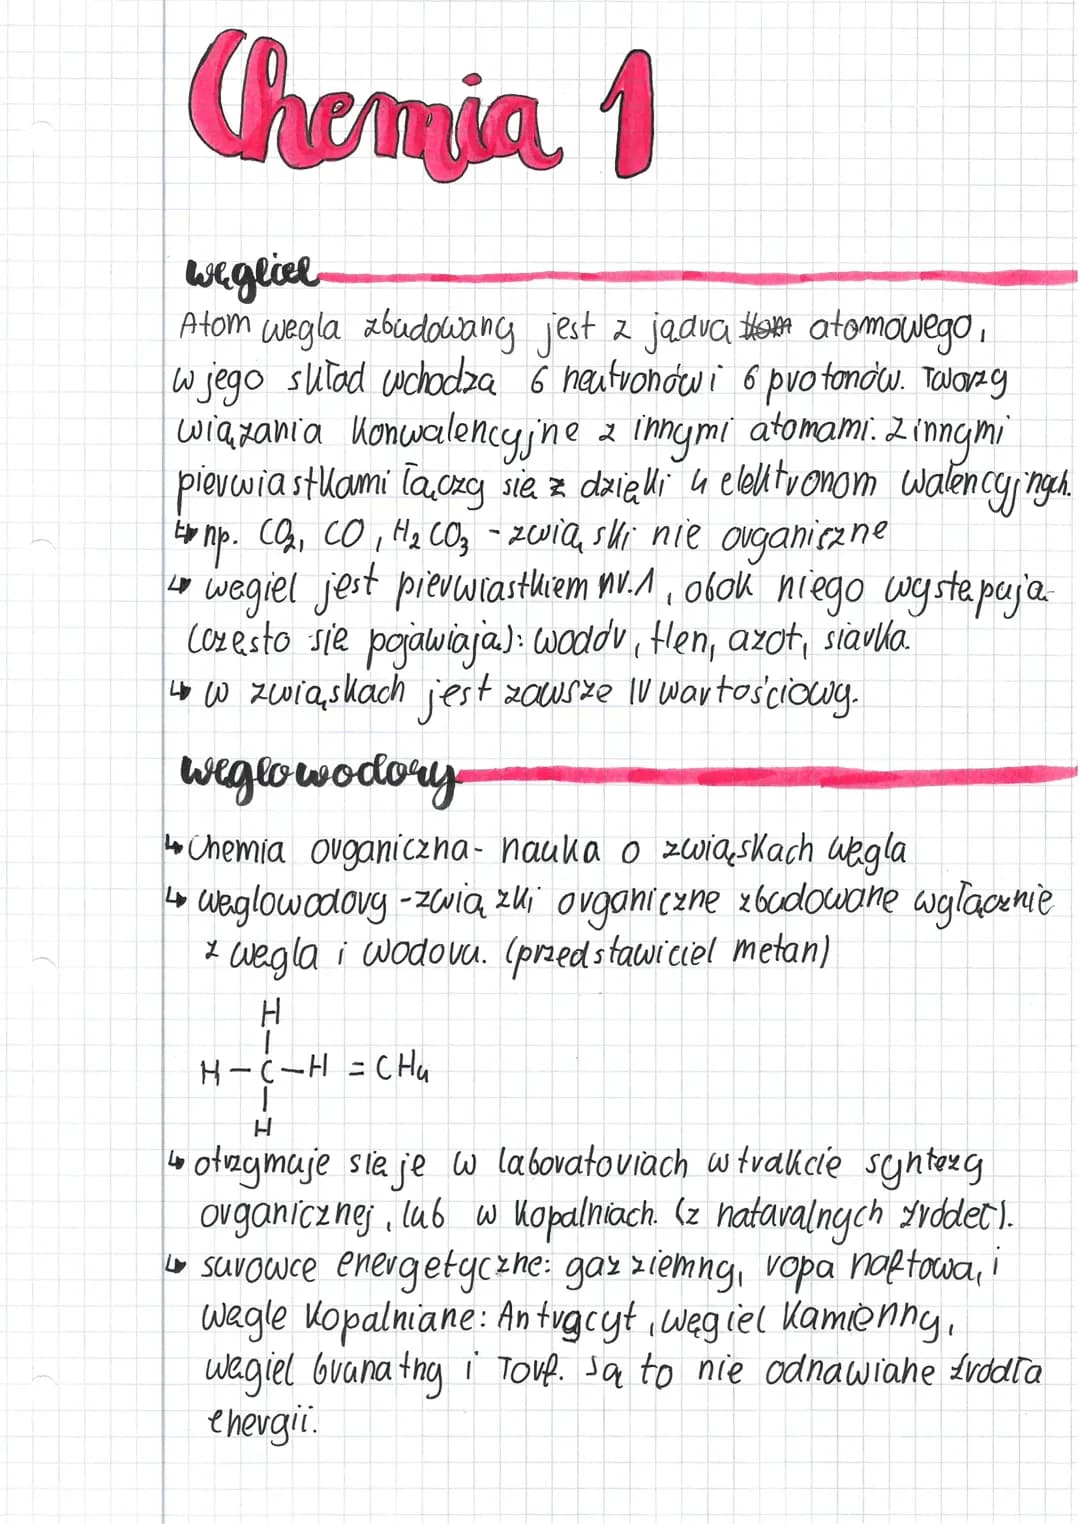 Chemia 1
węgiel
Atom węgla zbudowany jest z jądra atomowego,
w jego skład wchodzą 6 neutronów i 6 protonów. Tworzy
wiązania konwalencyjne z innymi atomami. Z innymi
pierwiastkami łączy się z dzięki 4 elektronom walencyjnych.
↳ np. CO₂, CO, H₂CO₃ - związki nie organiczne
↳ węgiel jest pierwiastkiem nr.1, obok niego występują
(często się pojawiają): wodór, tlen, azot, siarka.
↳ w związkach jest zawsze IV wartościowy.
węglowodory
↳ Chemia organiczna - nauka o związkach węgla
↳ węglowodory - związki organiczne zbudowane wyłącznie
z węgla i wodoru. (przedstawiciel metan)
H
|
H – C – H = CH₄
|
H
↳ otrzymuje się je w laboratoriach w trakcie syntezy
organicznej, lub w kopalniach. (z naturalnych źródeł).
↳ surowce energetyczne: gaz ziemny, ropa naftowa, i
węgle kopalniane: Antracyt, węgiel kamienny,
węgiel brunatny i Torf. są to nie odnawiane źródła
energii.